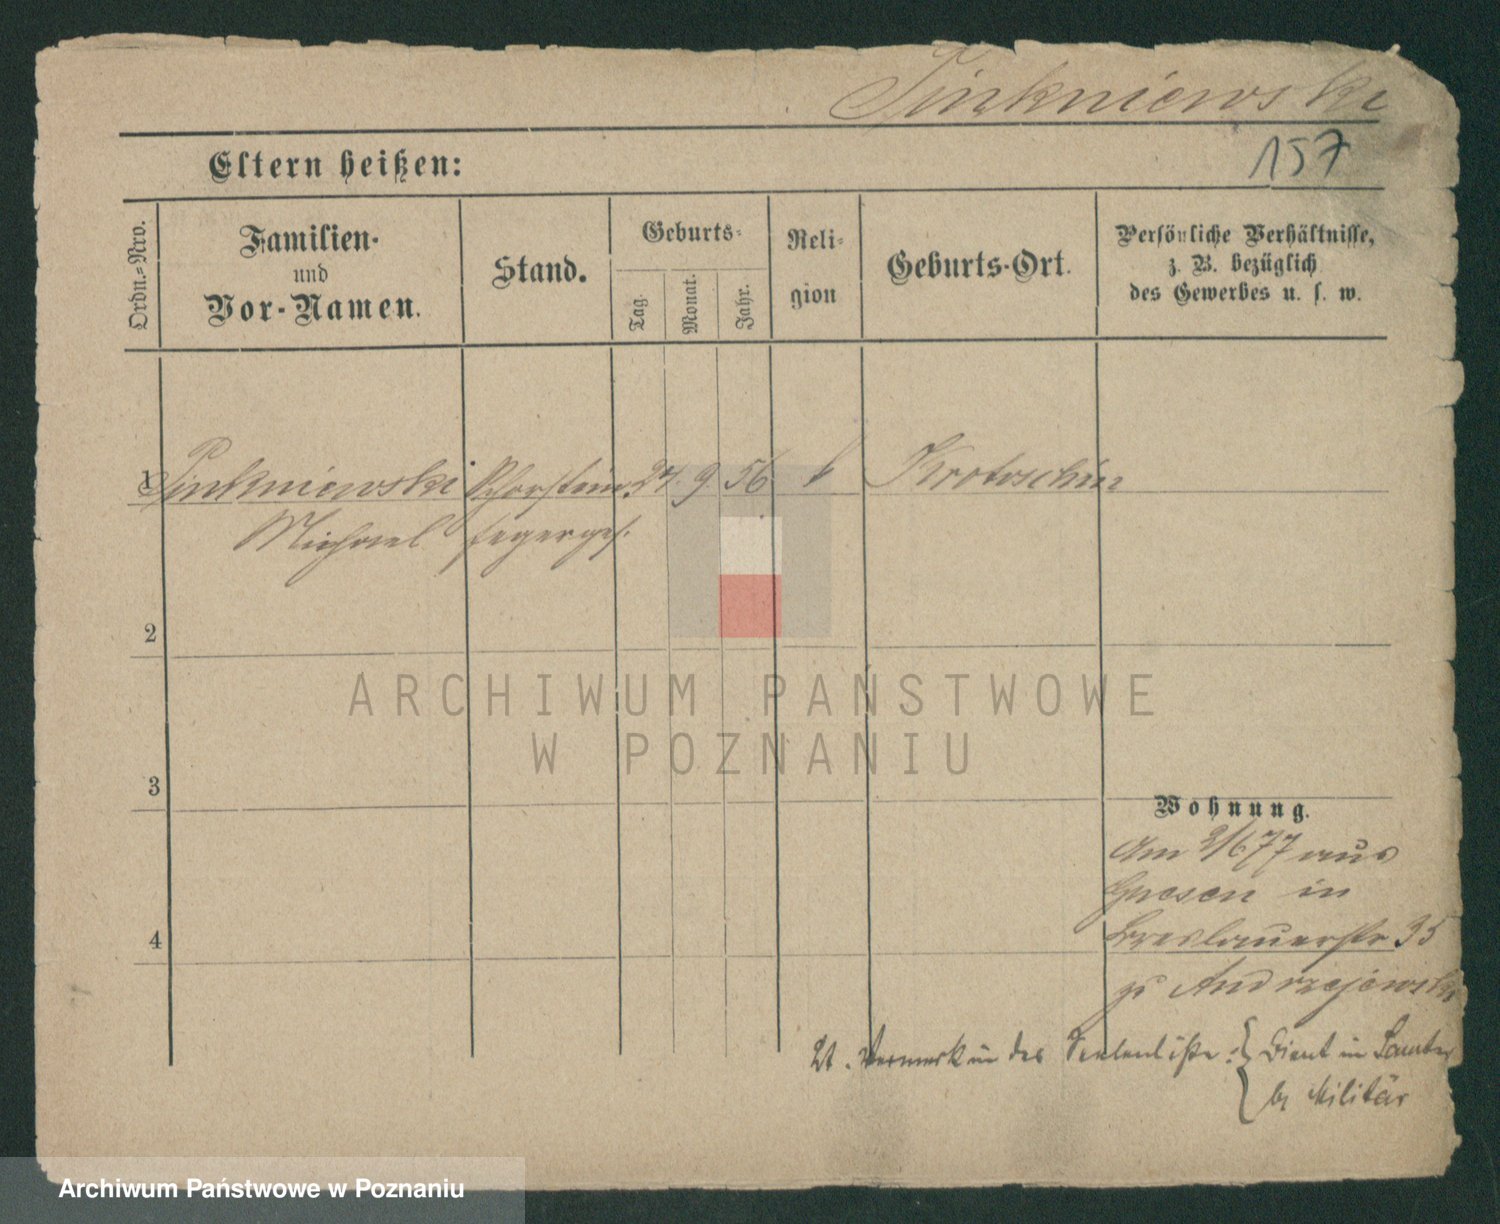 Pinkniewski
157
Eltern heißen:
Ordn.-Nro.
Familien-
und
Vor-Namen.
Stand.
Geburts-
Tag.
Monat.
Jahr.
Reli-
gion
Geburts-Ort.
Persönliche Verhältnisse,
z. B. bezüglich
des Gewerbes u. s. w.
1 Pinkniewski Schornstein 27. 9 56 k Krotoschin
Michael fegerges.
2
3
4
Wohnung.
Am 2/6 77 aus
Gnesen in
Breslauerstr 35
zu Andrzejewski
Lt. Vermerk in der Seelenliste: Dient in Samter
b. Militär
ARCHIWUM PAŃSTWOWE
W POZNANIU
Archiwum Państwowe w Poznaniu